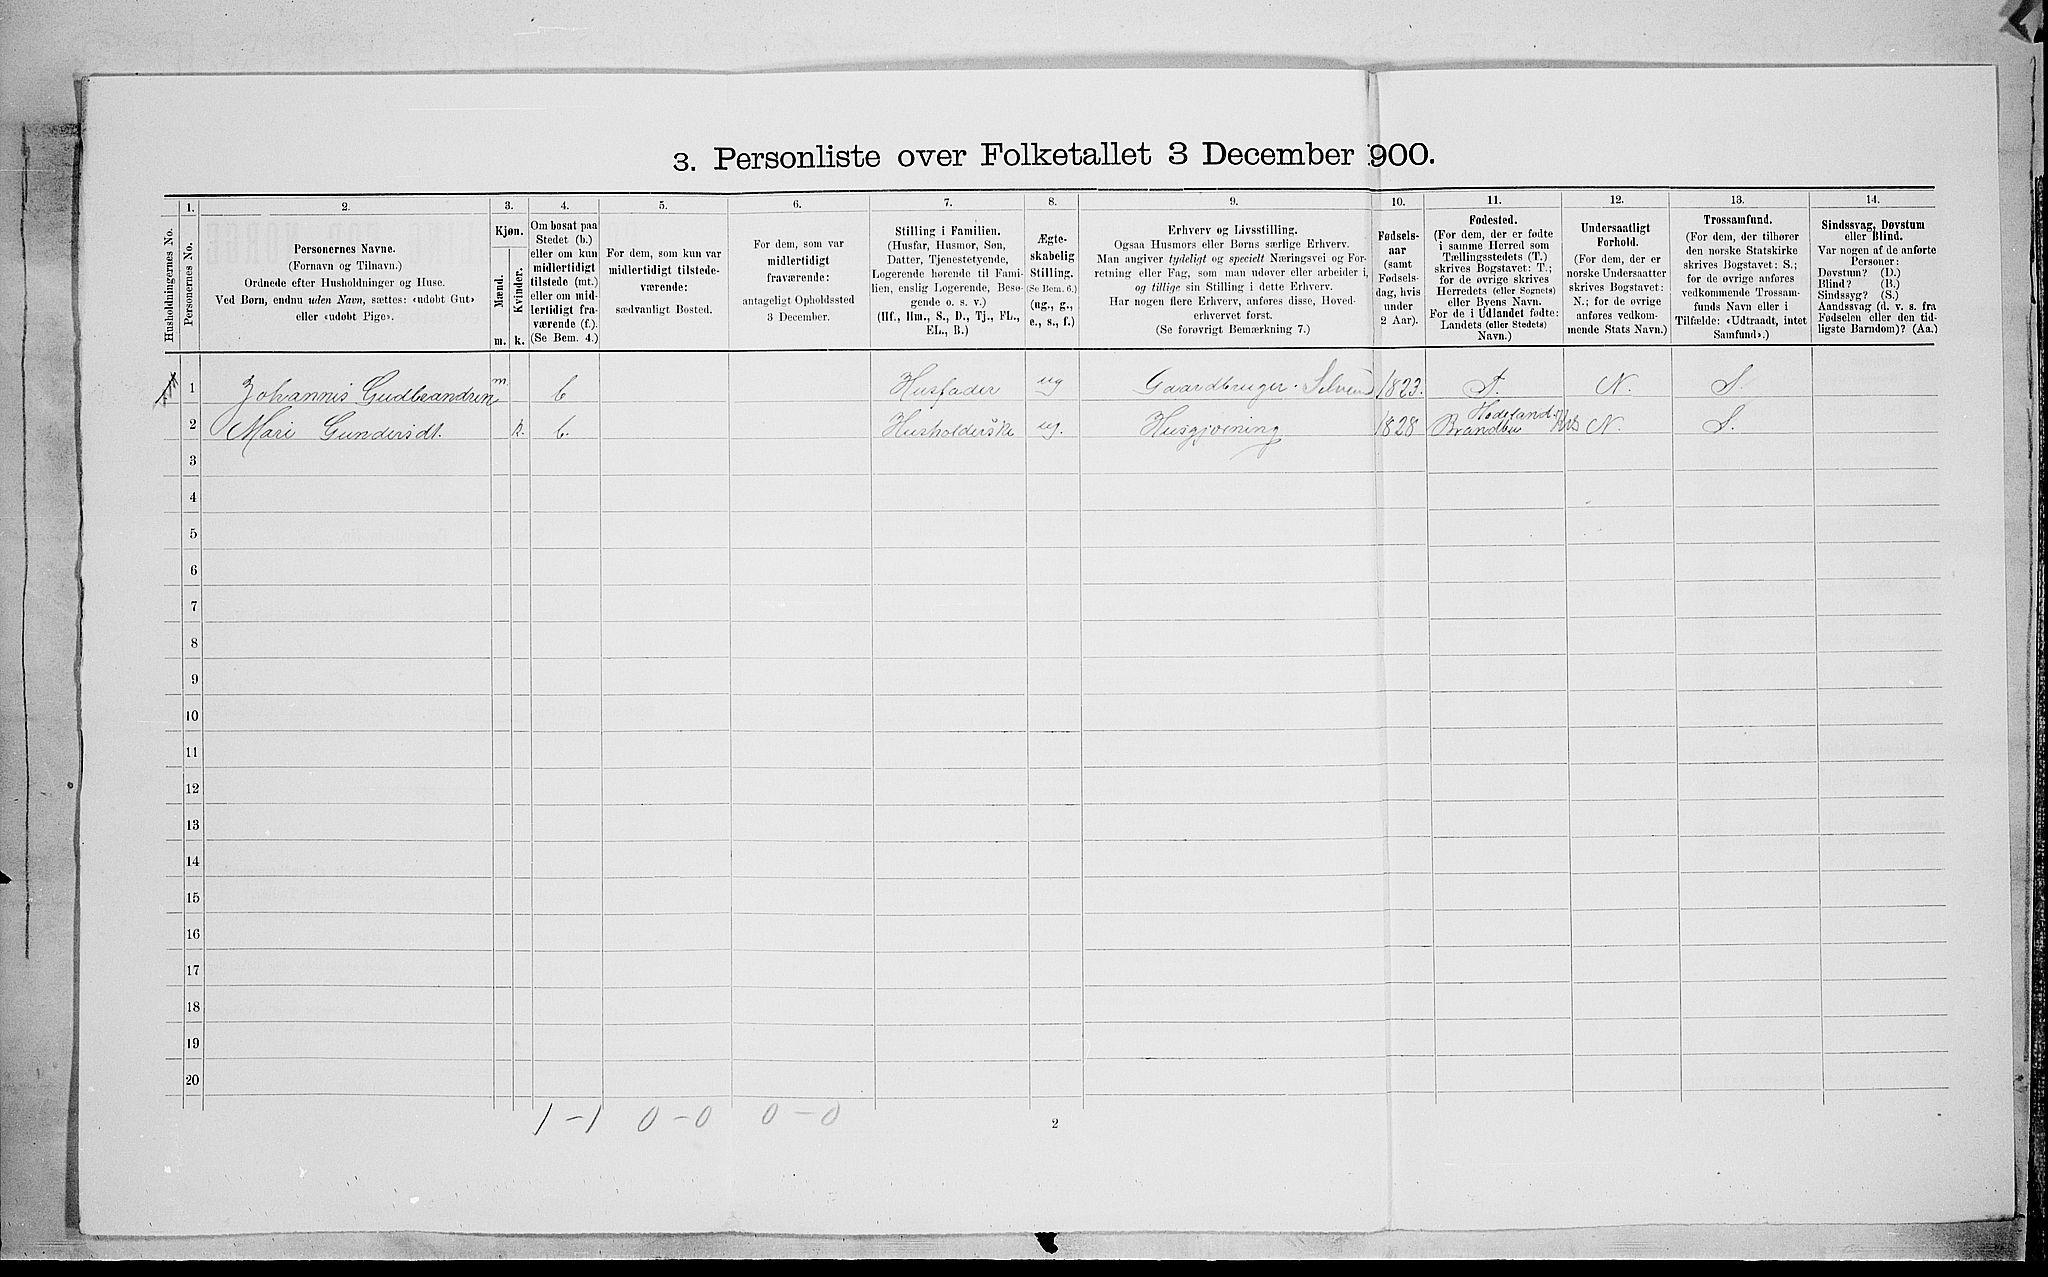 3. Personliste over Folketallet 3 December 1900.
Husholdningernes No.
1.
Personernes No.
2.
Personernes Navne.
(Fornavn og Tilnavn.)
Ordnede efter Husholdninger og Huse.
Ved Børn, endnu uden Navn, sættes: «udøbt Gut»
eller «udøbt Pige».
3.
Kjøn.
Mænd.
Kvinder.
m.
k.
4.
Om bosat paa
Stedet (b.)
eller om kun
midlertidigt
tilstede (mt.)
eller om mid-
lertidigt fra-
værende (f.).
(Se Bem. 4.)
5.
For dem, som kun var
midlertidigt tilstede-
værende:
sædvanligt Bosted.
6.
For dem, som var
midlertidigt
fraværende:
antageligt Opholdssted
3 December.
7.
Stilling i Familien.
(Husfar, Husmor, Søn,
Datter, Tjenestetyende,
Logerende hørende til Fami-
lien, enslig Logerende, Besø-
gende o. s. v.)
(Hf., Hm., S., D., Tj., FL.,
EL., B.)
8.
Ægte-
skabelig
Stilling.
(Se Bem. 6.)
(ug., g.,
e., s., f.)
9.
Erhverv og Livsstilling.
Ogsaa Husmors eller Børns særlige Erhverv.
Man angiver tydeligt og specielt Næringsvei og For-
retning eller Fag, som man udøver eller arbeider i,
og tillige sin Stilling i dette Erhverv.
Har nogen flere Erhverv, anføres disse, Hoved-
erhvervet først.
(Se forøvrigt Bemærkning 7.)
10.
Fødsels-
aar
(samt
Fødsels-
dag, hvis
under
2 Aar).
11.
Fødested.
(For dem, der er fødte
i samme Herred som
Tællingsstedets (T.)
skrives Bogstavet: T.;
for de øvrige skrives
Herredets (eller Sognets)
eller Byens Navn.
For de i Udlandet fødte:
Landets (eller Stedets)
Navn.)
12.
Undersaatligt
Forhold.
(For dem, der er
norske Undersaatter
skrives Bogstavet:
N.; for de øvrige
anføres vedkom-
mende Stats Navn.)
13.
Trossamfund.
(For dem, der tilhører
den norske Statskirke
skrives Bogstavet: S.;
for de øvrige anføres
vedkommende Trossam-
funds Navn eller i
Tilfælde: «Udtraadt, intet
Samfund».)
14.
Sindssvag, Døvstum
eller Blind.
Var nogen af de anførte
Personer:
Døvstum? (D.)
Blind? (B.)
Sindssyg? (S.)
Aandssvag (d. v. s. fra
Fødselen eller den tid-
ligste Barndom)? (Aa.)
1 Johannis Gudbrandsen m. b Husfader ug Gaardbruger. Selveier 1823. T. N. S.
2 Mari Gundersdt. k. b. Husholderske ug. Husgjerning 1828 Hadeland Brandbu N. S.
3
4
5
6
7
8
9
10
11
12
13
14
15
16
17
18
19
20
1 – 1 0 – 0 0 – 0
2